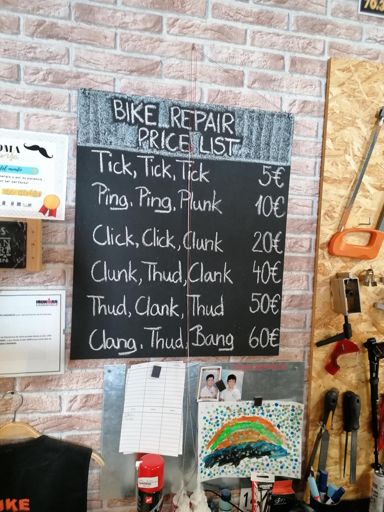 BIKE REPAIR
PRICE LIST
Tick, Tick, Tick 5€
Ping, Ping, Plunk 10€
Click, Click, Clunk 20€
Clunk, Thud, Clank 40€
Thud, Clank, Thud 50€
Clang, Thud, Bang 60€